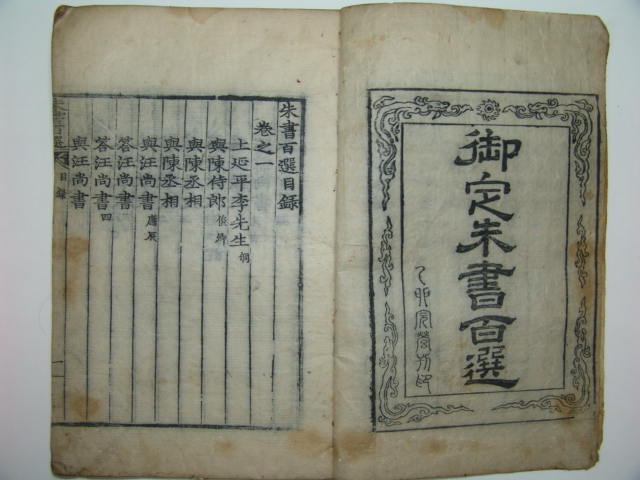 御定朱書百選
乙卯完營刊印
朱書百選目錄
卷之一
上延平李先生 侗
與陳侍郎 俊卿
與陳丞相
與陳丞相
與汪尚書 應辰
答汪尚書
答汪尚書 四
與汪尚書
朱書百選 目錄 一